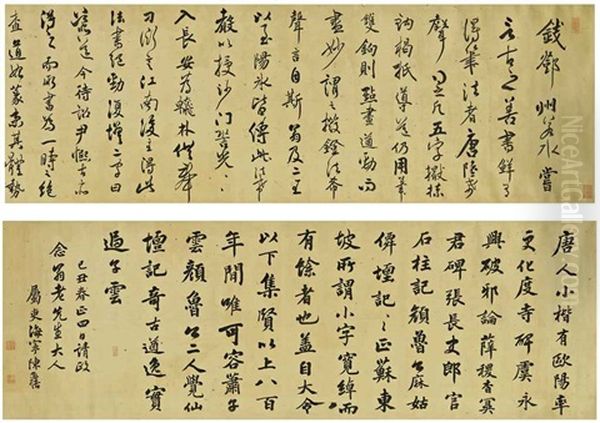 錢鄧州若水嘗
言古之善書鮮有
得筆法者唐陸希
聲得之凡五字擫押
鈎揭抵導送仍用筆
雙鉤則點畫遒勁而
盡妙謂之撥鐙法希
聲言自斯翁及二王
以至陽冰皆傳此法希
聲以授沙門䛒光光
入長安為翰林供奉
刁衎言江南後主得此
法書絕勁復增二字曰
導送今待詔尹熙古亦
得之而所書為一時之絕
查道始篆患其體勢
唐人小楷有歐陽率
更化度寺碑虞永
興破邪論薛稷杳冥
君碑張長史郎官
石柱記顏魯公麻姑
僊壇記記正蘇東
坡所謂小字寬綽而
有餘者也蓋自大令
以下集賢以上八百
年間唯可容蕭子
雲顏魯公二人覺仙
壇記奇古遒逸實
過子雲
己丑春正四日請政
念翁老先生大人
屬東海寧陳
NiceArtGallery.com